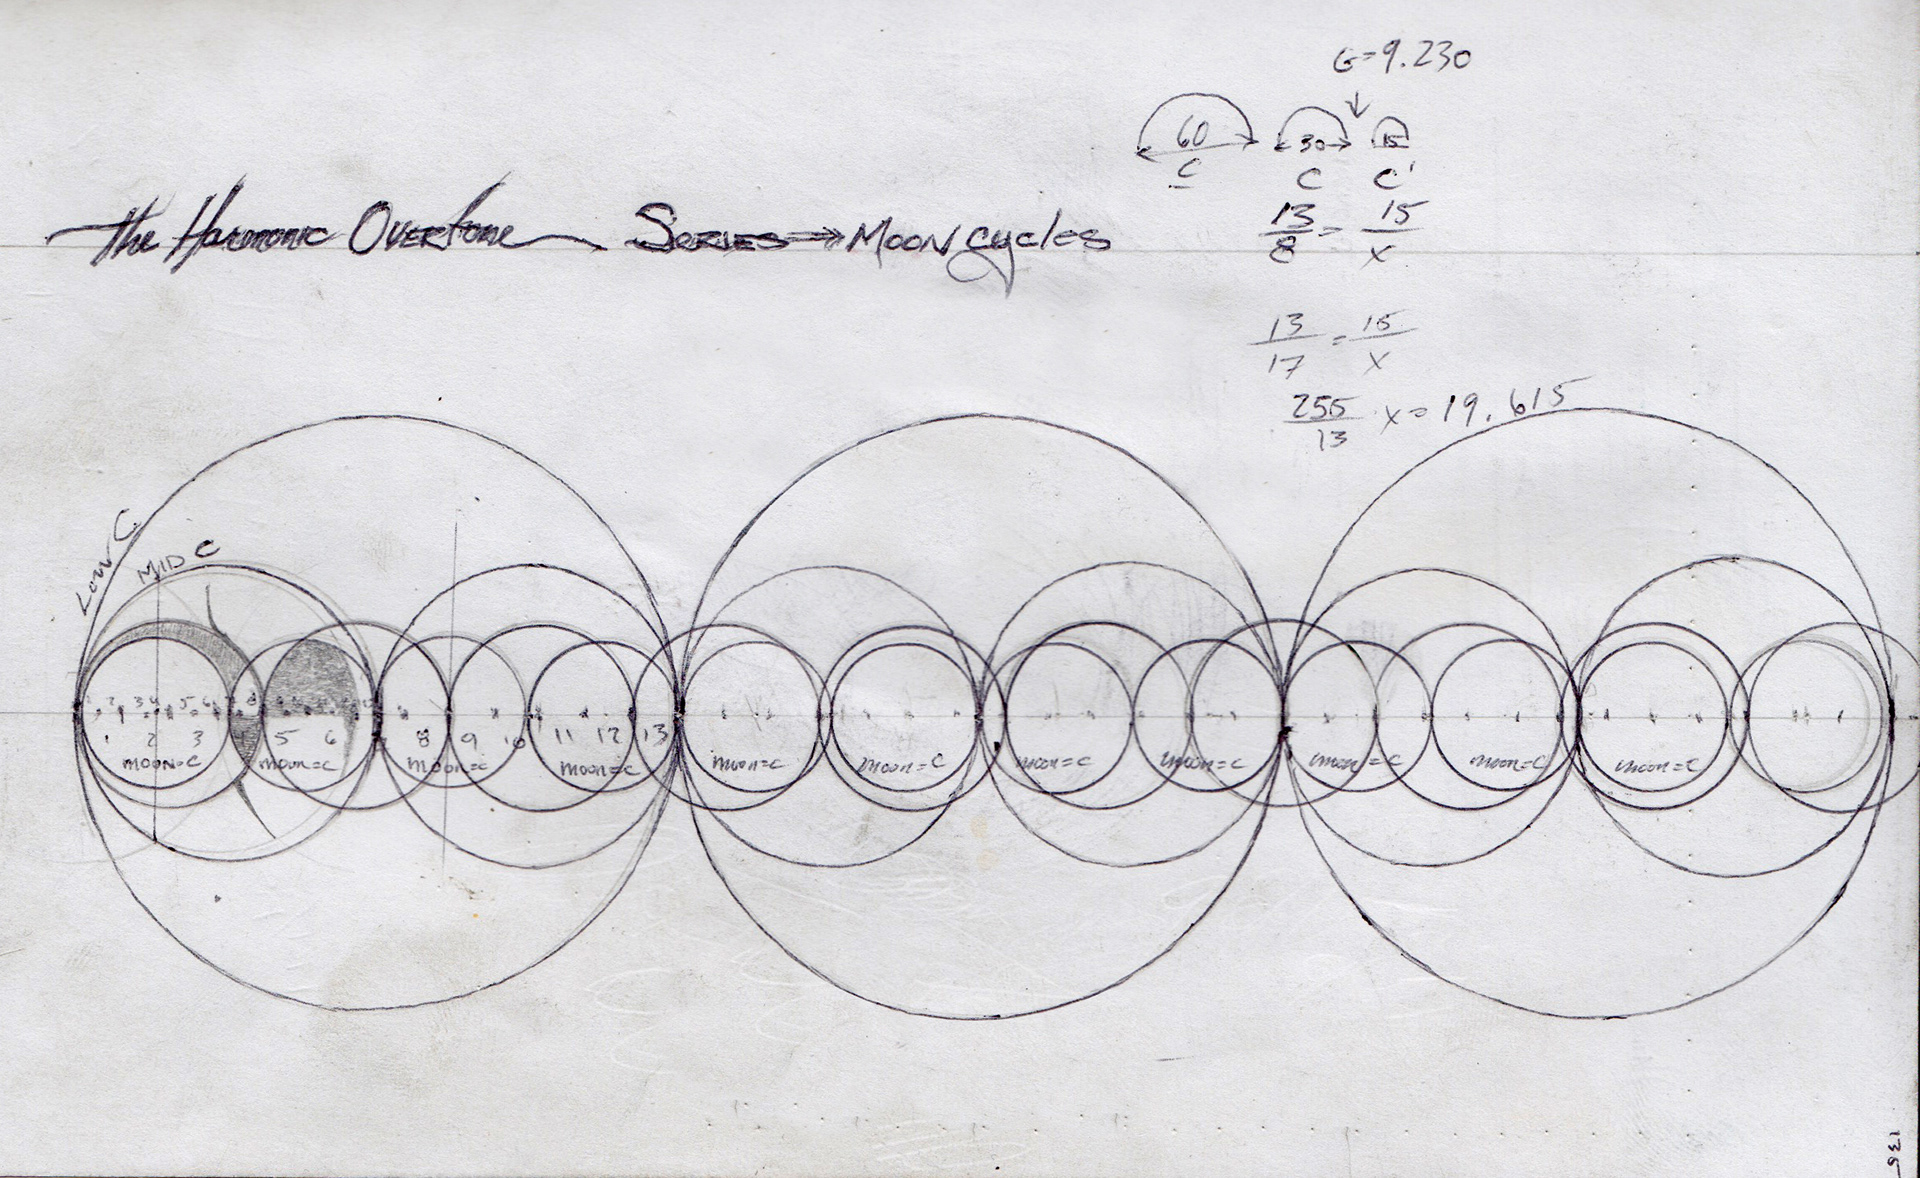 G=9.230
60 30 15
C C C'
The Harmonic Overtone Series → Moon cycles
13/8 = 15/x
13/17 = 15/x
255/13 x=19.615
Low C
MID C
1 2 3 5 6 8 9 10 11 12 13
moon=c moon=c moon=c moon=c moon=c moon=c moon=c moon=c moon=c moon=c moon=c
136